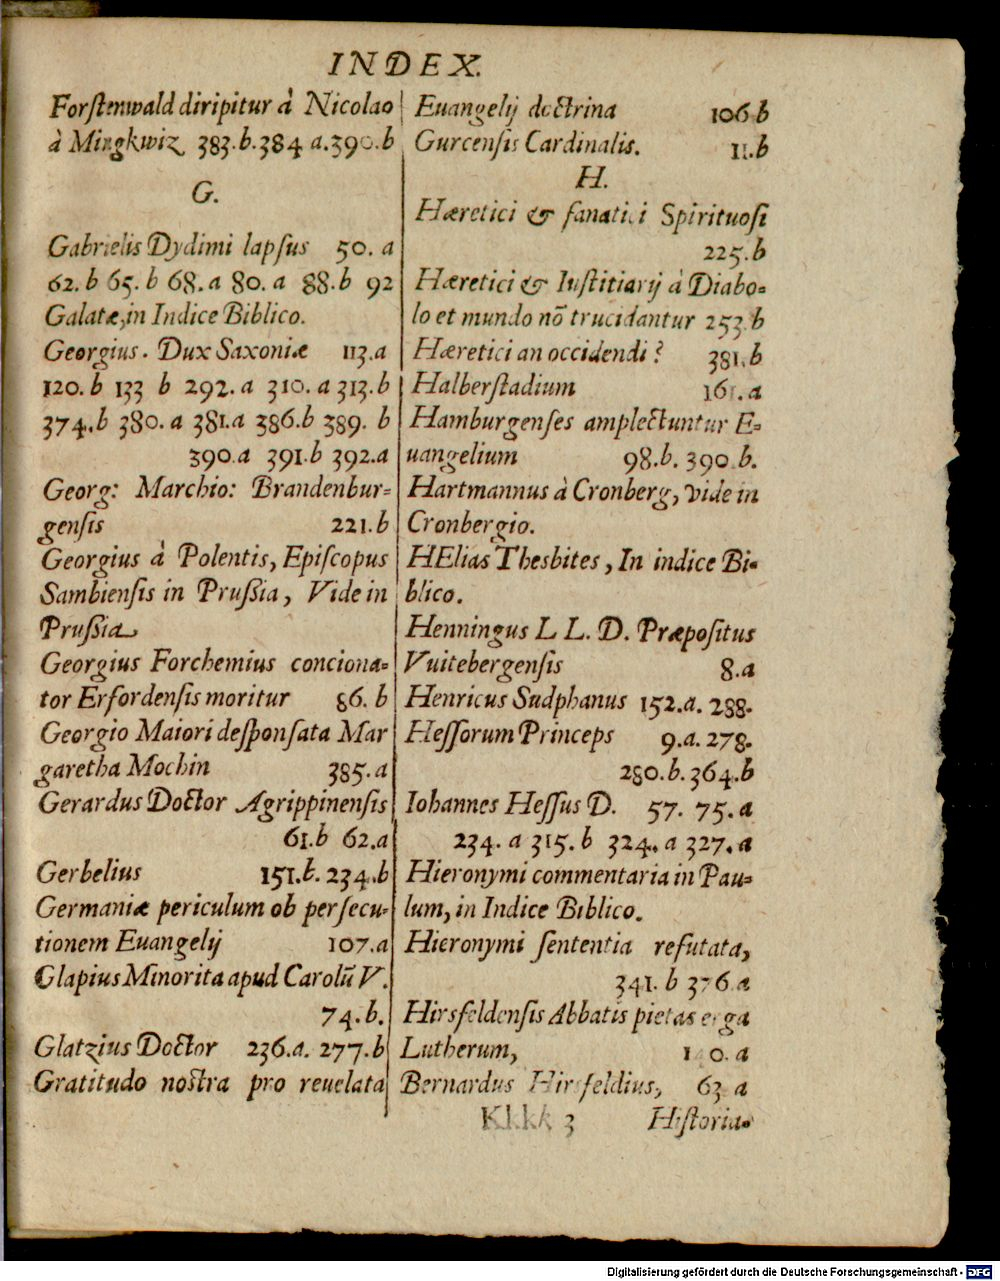 INDEX.
Forstenwald diripitur à Nicolao
à Mingkwiz 383.b.384 a.390.b
G.
Gabrielis Dydimi lapsus 50. a
62. b 65. b 68. a 80. a 88. b 92
Galatæ, in Indice Biblico.
Georgius. Dux Saxoniæ 113.a
120. b 133 b 292. a 310. a 313. b
374. b 380. a 381.a 386.b 389. b
390.a 391.b 392.a
Georg: Marchio: Brandenbur=
gensis 221.b
Georgius à Polentis, Episcopus
Sambiensis in Prussia, Vide in
Prussia
Georgius Forchemius conciona=
tor Erfordensis moritur 86. b
Georgio Maiori desponsata Mar
garetha Mochin 385.a
Gerardus Doctor Agrippinensis
61.b 62.a
Gerbelius 151.b. 234.b
Germaniæ periculum ob persecu=
tionem Euangelij 107.a
Glapius Minorita apud Carolũ V.
74.b.
Glatzius Doctor 236.a. 277.b
Gratitudo nostra pro reuelata
Euangelij doctrina 106 b
Gurcensis Cardinalis. 11.b
H.
Hæretici & fanatici Spirituosi
225.b
Hæretici & Iustitiarij à Diabo=
lo et mundo nõ trucidantur 253.b
Hæretici an occidendi? 381.b
Halberstadium .a
Hamburgenses amplectuntur E=
uangelium 98.b. 390.b.
Hartmannus à Cronberg, vide in
Cronbergio.
HElias Thesbites, In indice Bi=
blico.
Henningus L L. D. Præpositus
Vuitebergensis 8.a
Henricus Sudphanus 152.a. 288.
Hessorum Princeps 9.a. 278.
280.b. 364.b
Iohannes Hessus D. 57. 75. a
234. a 315. b 324. a 327. a
Hieronymi commentaria in Pau=
lum, in Indice Biblico.
Hieronymi sententia refutata,
341. b 376 a
Hirsfeldensis Abbatis pietas erga
Lutherum, a
Bernardus Hirsfeldius, 63 a
Kkkk 3 Historia=
Digitalisierung gefördert durch die Deutsche Forschungsgemeinschaft - DFG